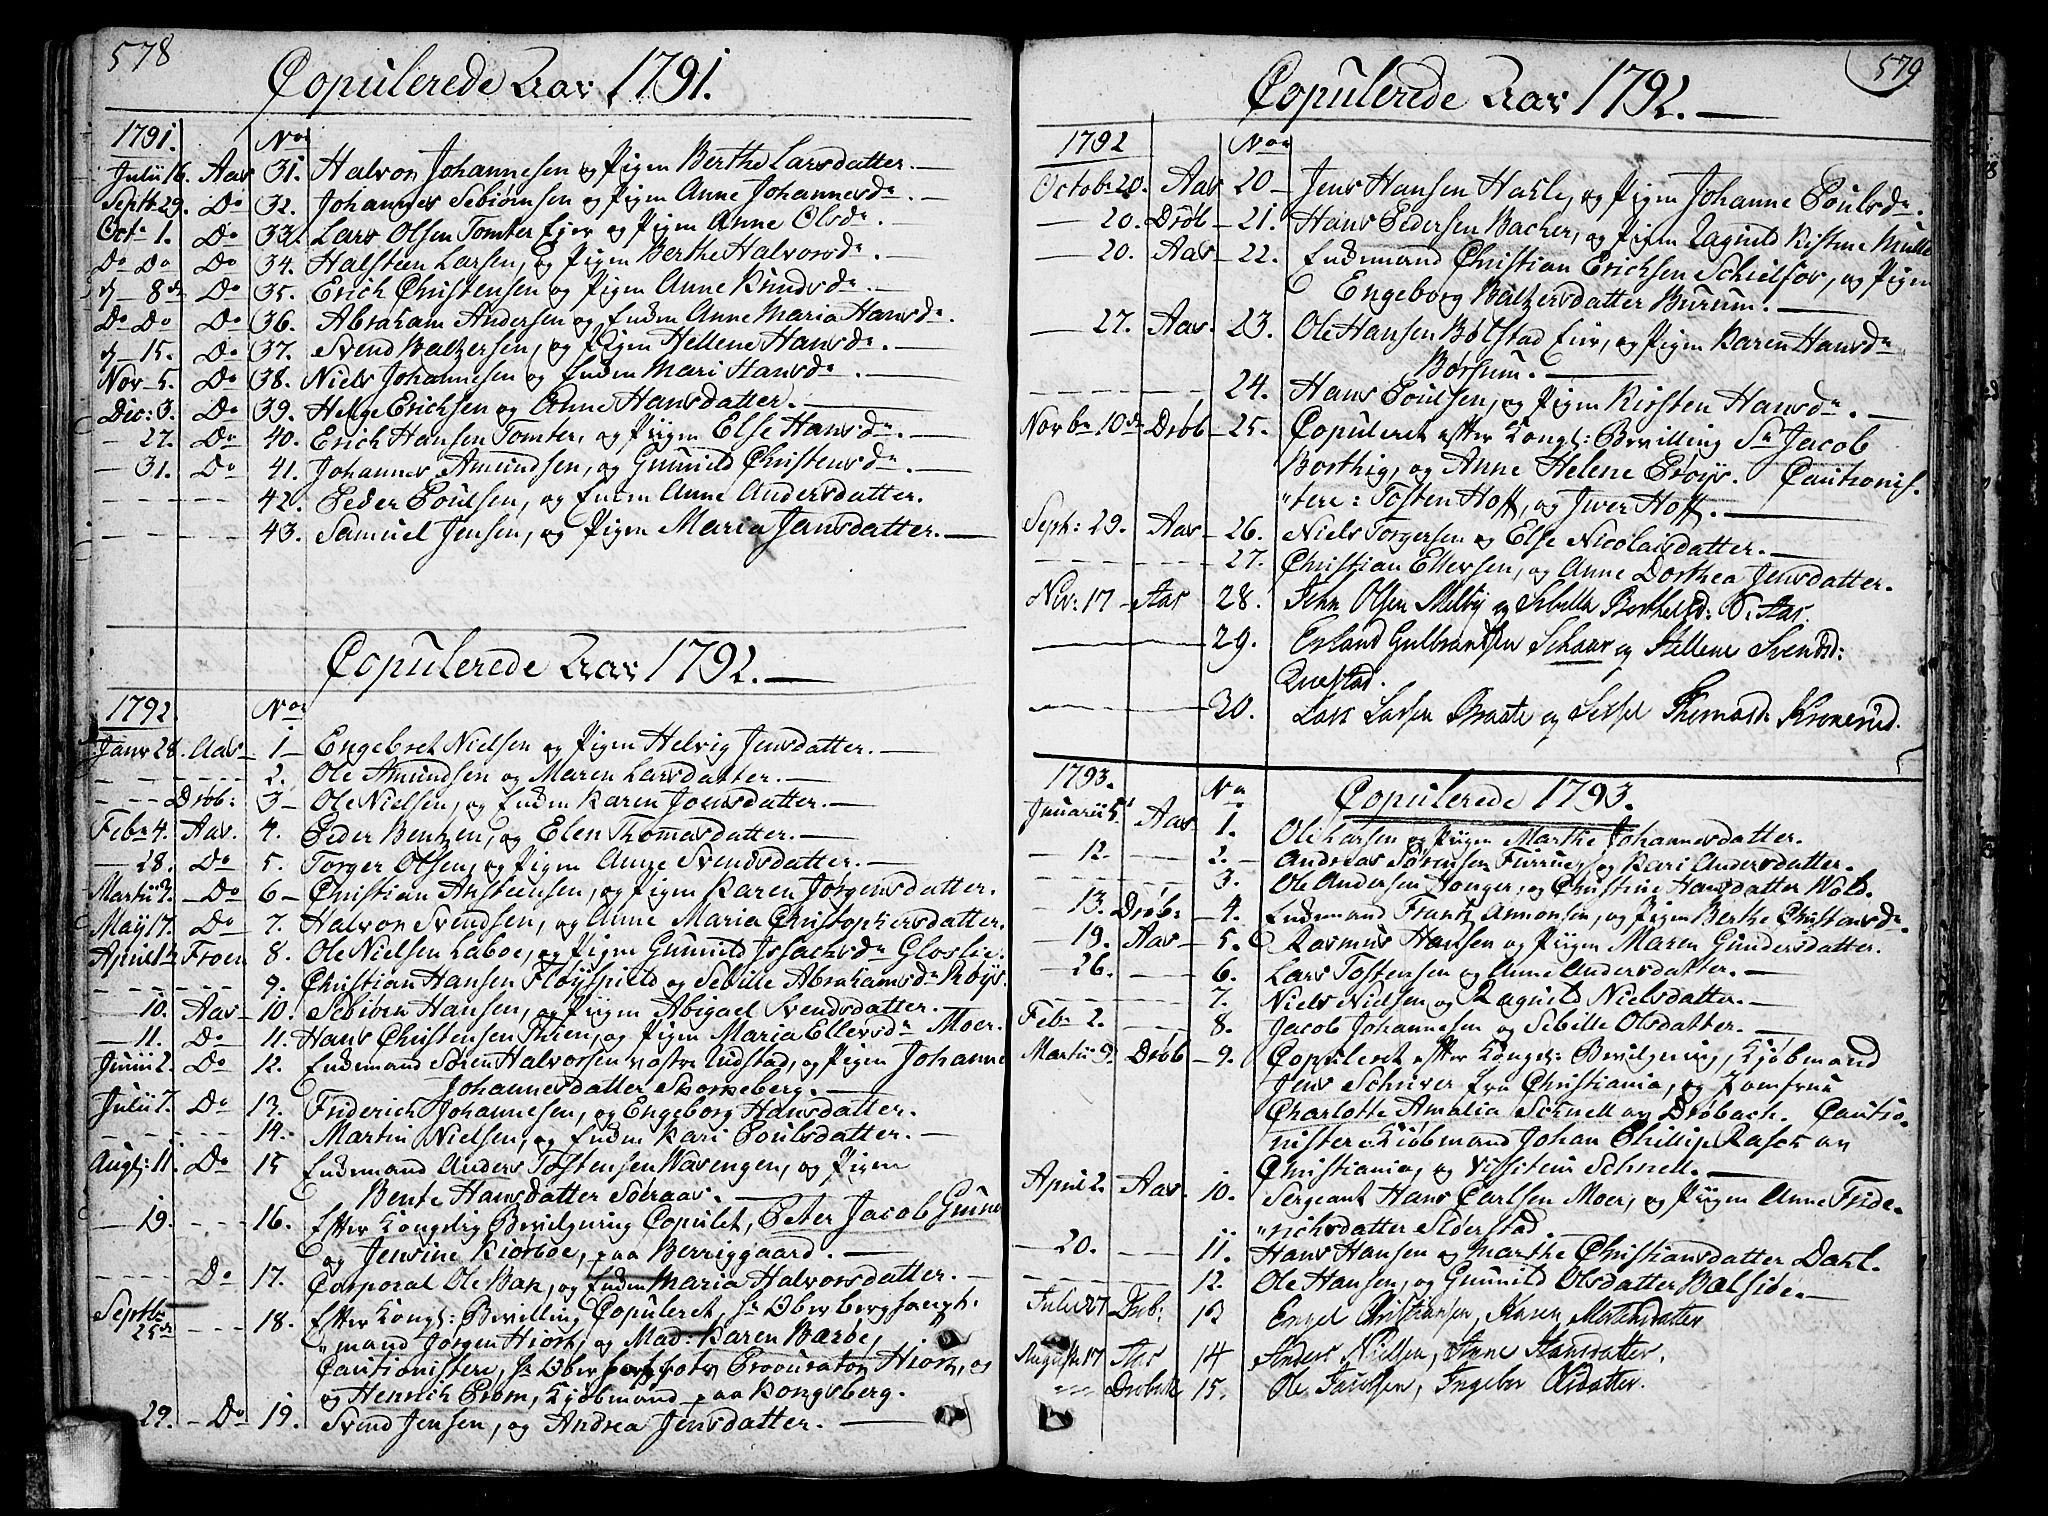 578
Copulerede Aar 1791.
1791. No
Julii 16. Aas 31. Halvor Johannesen og Pigen Berthe Larsdatter. —
Septbr 29. Do 32. Johannes Sebiørnsen og Pigen Anne Johannesdr. —
Octr 1. Do 33. Lars Olsen Tomter Eier og Pigen Anne Olsdr. —
Do Do Do 34. Halsteen Larsen, og Pigen Berthe Halvorsdr. —
d — 8de Do 35. Erich Christensen og Pigen Anne Knudsdr. —
Do Do Do 36. Abraham Andersen og Enken Anne Maria Hansdr.
d — 15. Do 37. Svend Baltzersen, og Pigen Hellene Hansdr. —
Nov — 5. Do 38. Niels Johannesen og Enken Mari Hansdr. —
Dec: 3. Do 39. Helge Erichsen og Anne Hansdatter. —
— 27. Do 40. Erich Hansen Tomter, og Pigen Else Hansdr. —
— 31. Do 41. Johannes Amundsen, og Gunild Christensdr. —
42. Peder Poulsen, og Enken Anne Andersdatter.
43. Samuel Jensen, og Pigen Maria Jansdatter. —
Copulerede Aar 1792. —
1792. No
Janv 28. Aas — 1 — Engebret Nielsen og Pigen Helvig Jensdatter. —
2. Ole Amundsen og Maren Larsdatter. —
Drøb: 3 — Ole Nielsen, og Enken Karen Jonsdatter. —
Febr 4. Aas. 4. Peder Bentzen, og Elen Thomasdatter. —
— 28. Do 5. Torger Olsen, og Pigen Anne Svendsdatter. —
Martii 3. — Do 6 — Christian Ansteensen, og Pigen Karen Jørgensdatter.
May 17. Do 7. Halvor Svendsen, og Anne Maria Christophersdatter.
April 12 Froen 8. Ole Nielsen Laboe, og Pigen Gunild Issachsdr Gloslie.
9. Christian Hansen Fløyspield og Sebille Abrahamsdr Krøys.
— 10. Aas — 10. Sebiørn Hansen, og Pigen Abigael Svendsdatter. —
— 11. Do 11. Hans Christensen Thien, og Pigen Maria Ellevsdr Moer.
Junii 2. Do 12. Enkemand Søren Halvorsen østre Rustad, og Pigen Johanne
Johannesdatter Skorkeberg. —
Julii 7. Do 13. Friderich Johannesen, og Engeborg Hansdatter. —
14. Martin Nielsen, og Enken Kari Poulsdatter. —
Augt: 11. Do 15 Enkemand Anders Tostensen Warengen, og Pigen
Bente Hansdatter Søraas. —
— 19. 16. Efter Kongelig Bevilgning Copulet, Peter Jacob
og Jensine Kiørboe, paa Berriggaard. —
Do 17. Corporal Ole Bak, og Enken Maria Halvorsdatter. —
Septbr 25de 18. Efter Kongl: Bevilling Copuleret, Sr Oberbergsaugt-
mand Jørgen Hiort, og Mad: Karen Barbe,
Cautionistere, Sr Ober Procurator Hiort, og
og Henrich Prom, Kjøbmand paa Kongsberg.
29. — Do 19. Svend Jensen, og Andrea Jensdatter. —
579
Copulerede Aar 1792. —
1792 No
Octobr 20. Aas — 20 — Jens Hansen Hasle, og Pigen Johanne Poulsdr.
— 20. Drøb — 21. Hans Pedersen Bacher, og Pigen Ragnild Kistine Mülle
— 20. Aas — 22. Enkemand Christian Erichsen Schielfos, og Pigen
Engeborg Baltzersdatter Burum. —
— 27. Aas. — 23. Ole Hansen Bølstad Eier, og Pigen Karen Hansdr
Børsum. —
24. Hans Poulsen, og Pigen Kirsten Hansdr. —
Novbr 10de Drøb — 25. Copuleret efter Kongl: Bevilling Sr Jacob
Borthig, og Anne Helene Erøys. Cautionis-
tere: Tosten Hoff, og Iver Hoff. —
Sept: 29. Aas — 26. Niels Torgersen og Else Nicolaisdatter. —
27. Christian Ellevsen, og Anne Dorthea Jensdatter.
Nov: 17 — Aas 28. John Olsen Melby og Sebille Berthelsd: N. Aas.
29. Erland Gulbrandsen Schaar og Hellene Svendsd:
30. Lars Larsen Braate og Sessel Thomasdr Kronerud.
1793. No Copulerede 1793.
Januarii 5t Aas 1. Ole Larsen og Pigen Marthe Johannesdatter.
— 12. 2. — Andreas Sørensen Furrueg og Kari Andersdatter.
3. Ole Andersen Honger, og Christine Hansdatter Wold.
— 13. Drøb: 4. Enkemand Frantz Amonsen, og Pigen Berthe Christensdr.
— 19. Aas — 5. Rasmus Hansen og Pigen Maren Gundersdatter.
— 26. 6. Lars Tostensen og Anne Andersdatter. —
7. Niels Nielsen og Ragnild Nielsdatter. —
Febr 2. 8. Jacob Johannesen og Sebille Olsdatter. —
Martii 9. Drøb — 9. Copuleret efter Kongel: Bevilgning, Kjøbmand
Jens Schriver fra Christiania, og Jomfrue
Charlotte Amalia Schnell av Drøbach. Cautio-
nister Kiøbmand Johan Phillip Rasch av
Christiania, og Visiteur Schnell. —
April 2. Aas. 10. Sergeant Hans Carlsen Moer, og Pigen Anne Fride-
richsdatter Sløerstad.
— 20. 11. Hans Hansen og Marthe Christiansdatter Dahl.
12. Ole Hansen, og Gunnild Olsdatter Balside. —
Julii 27 Drøb: 13 Engel Christiansen, Karen Mortensdatter
Augusti 17 Aas 14 Anders Nielsen, Anne Hansdatter.
Drøbak 15. Ole Jacobsen, Ingebor Olsdatter.